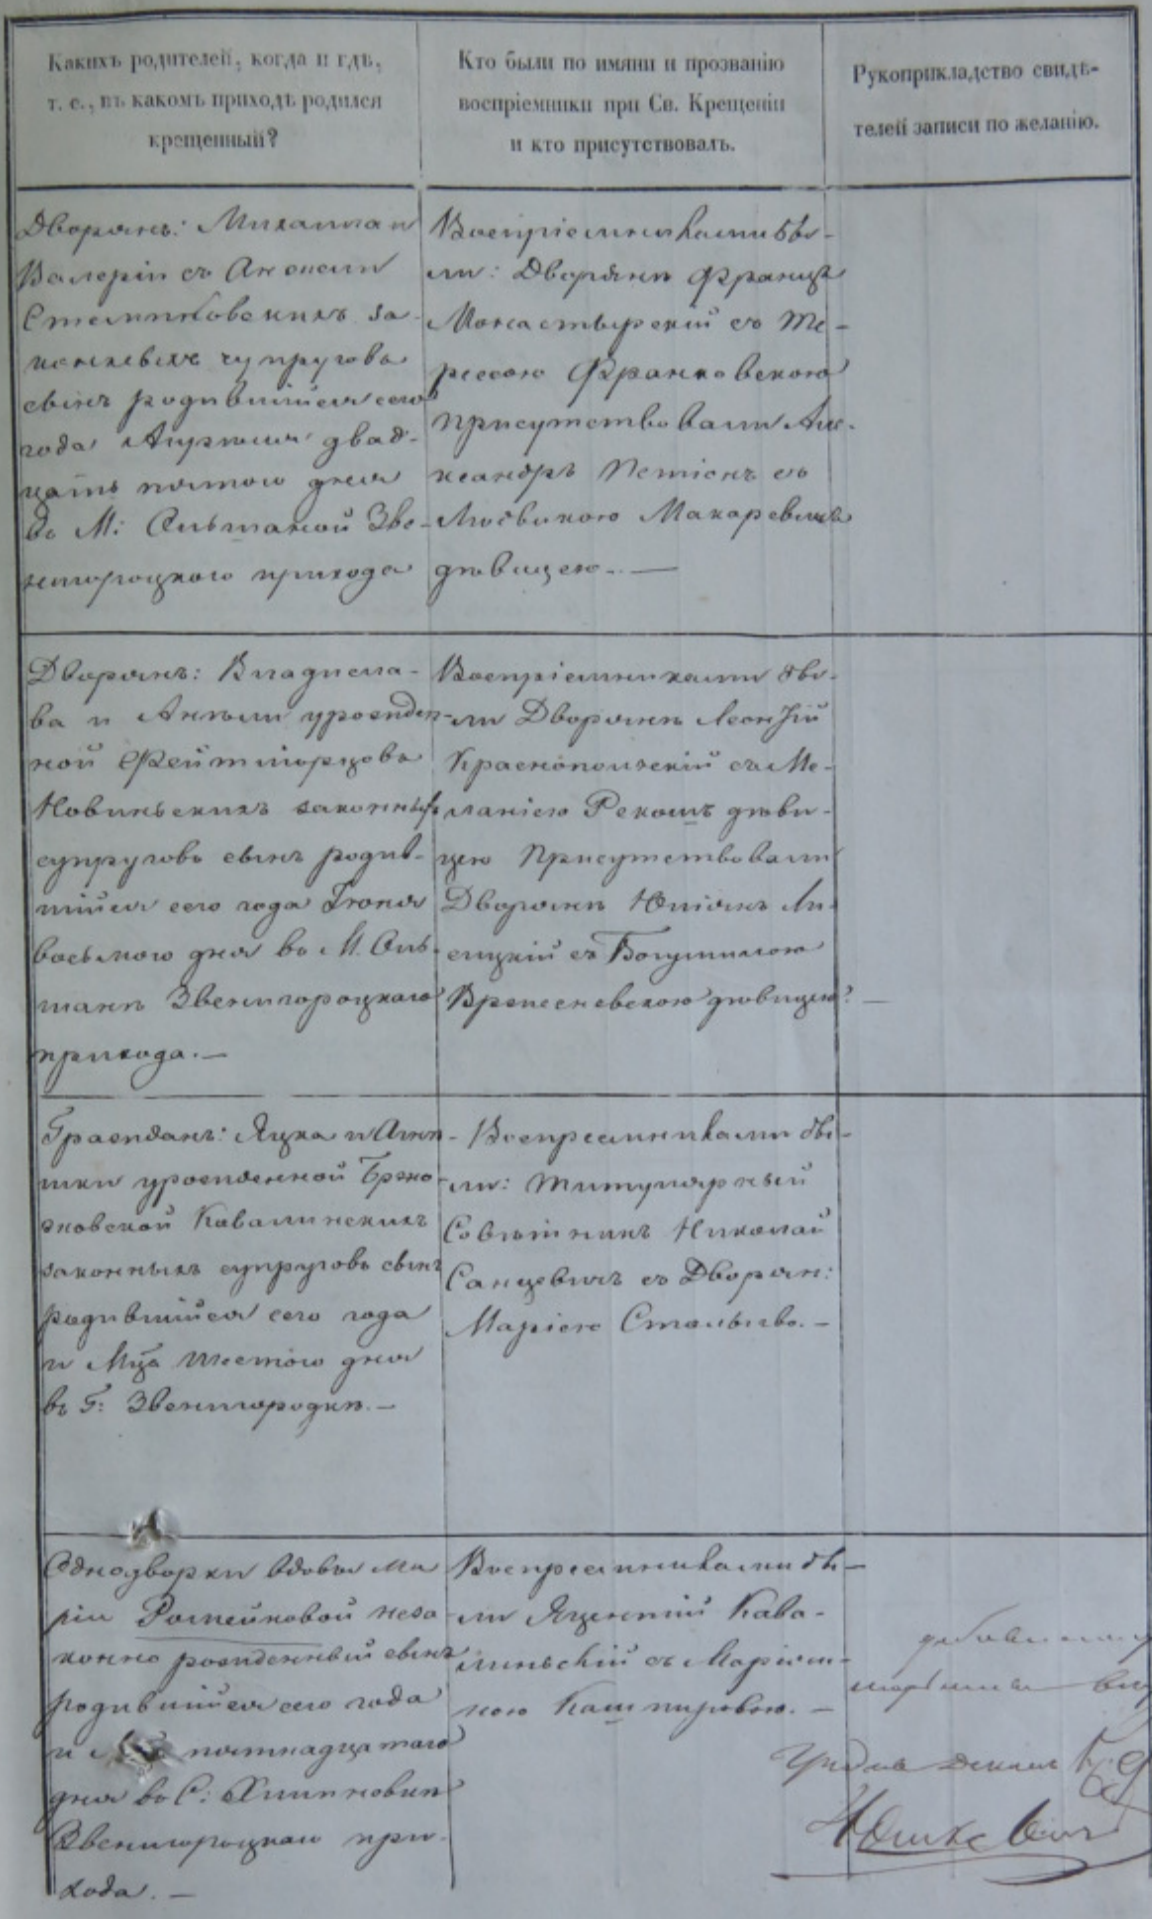 Какихъ родителей, когда и гдѣ,
т. е., въ какомъ приходѣ родился
крещенный?
Кто были по имяни и прозванію
воспріемники при Св. Крещеніи
и кто присутствовалъ.
Рукоприкладство свидѣ-
телей записи по желанію.
Дворянъ: Михаила и
Валеріи съ
законныхъ супруговъ
сынъ родившійся сего
года двад-
цать пятого дня
въ М: Ольшаной Зве-
нигороцкого прихода
Воспріемниками бы-
ли: Дворяне Францъ
Монастырскій съ Те-
рессою Франковскою
присутствовали Але-
ксандръ съ
Людвикою Макаревичъ
дѣвицею. —
Дворянъ: Владисла-
ва и Анели урожден-
ной
Новинскихъ законныхъ
супруговъ сынъ родив-
шійся сего года Іюня
восьмого дня въ М. Оль-
шанѣ Звенигороцкаго
прихода. —
Воспріемниками бы-
ли Дворяне Леонтій
Краснопольскій съ Ме-
ланіею дѣви-
цею Присутствовали
Дворяне Юліянъ Ли-
сицкій съ Богумилою
Вржесневскою дѣвицею. —
Гражданъ: Яцка и
урожденной
Кавалинскихъ
законныхъ супруговъ сынъ
родившійся сего года
и Мца шестого дня
въ Г: Звенигородкѣ. —
Воспреемниками бы-
ли: титулярный
Совѣтникъ Николай
Санцевичъ съ Дворян:
Маріею
Однодворки вдовы Ма-
ріи Ромейковой неза-
конно рожденный сынъ
родившійся сего года
и пятнадцатаго
дня въ С:
Звенигороцкаго при-
хода. —
Воспреемниками бы-
ли Яцентій Кава-
линьскій съ Маріян-
ною Кашпировою. —